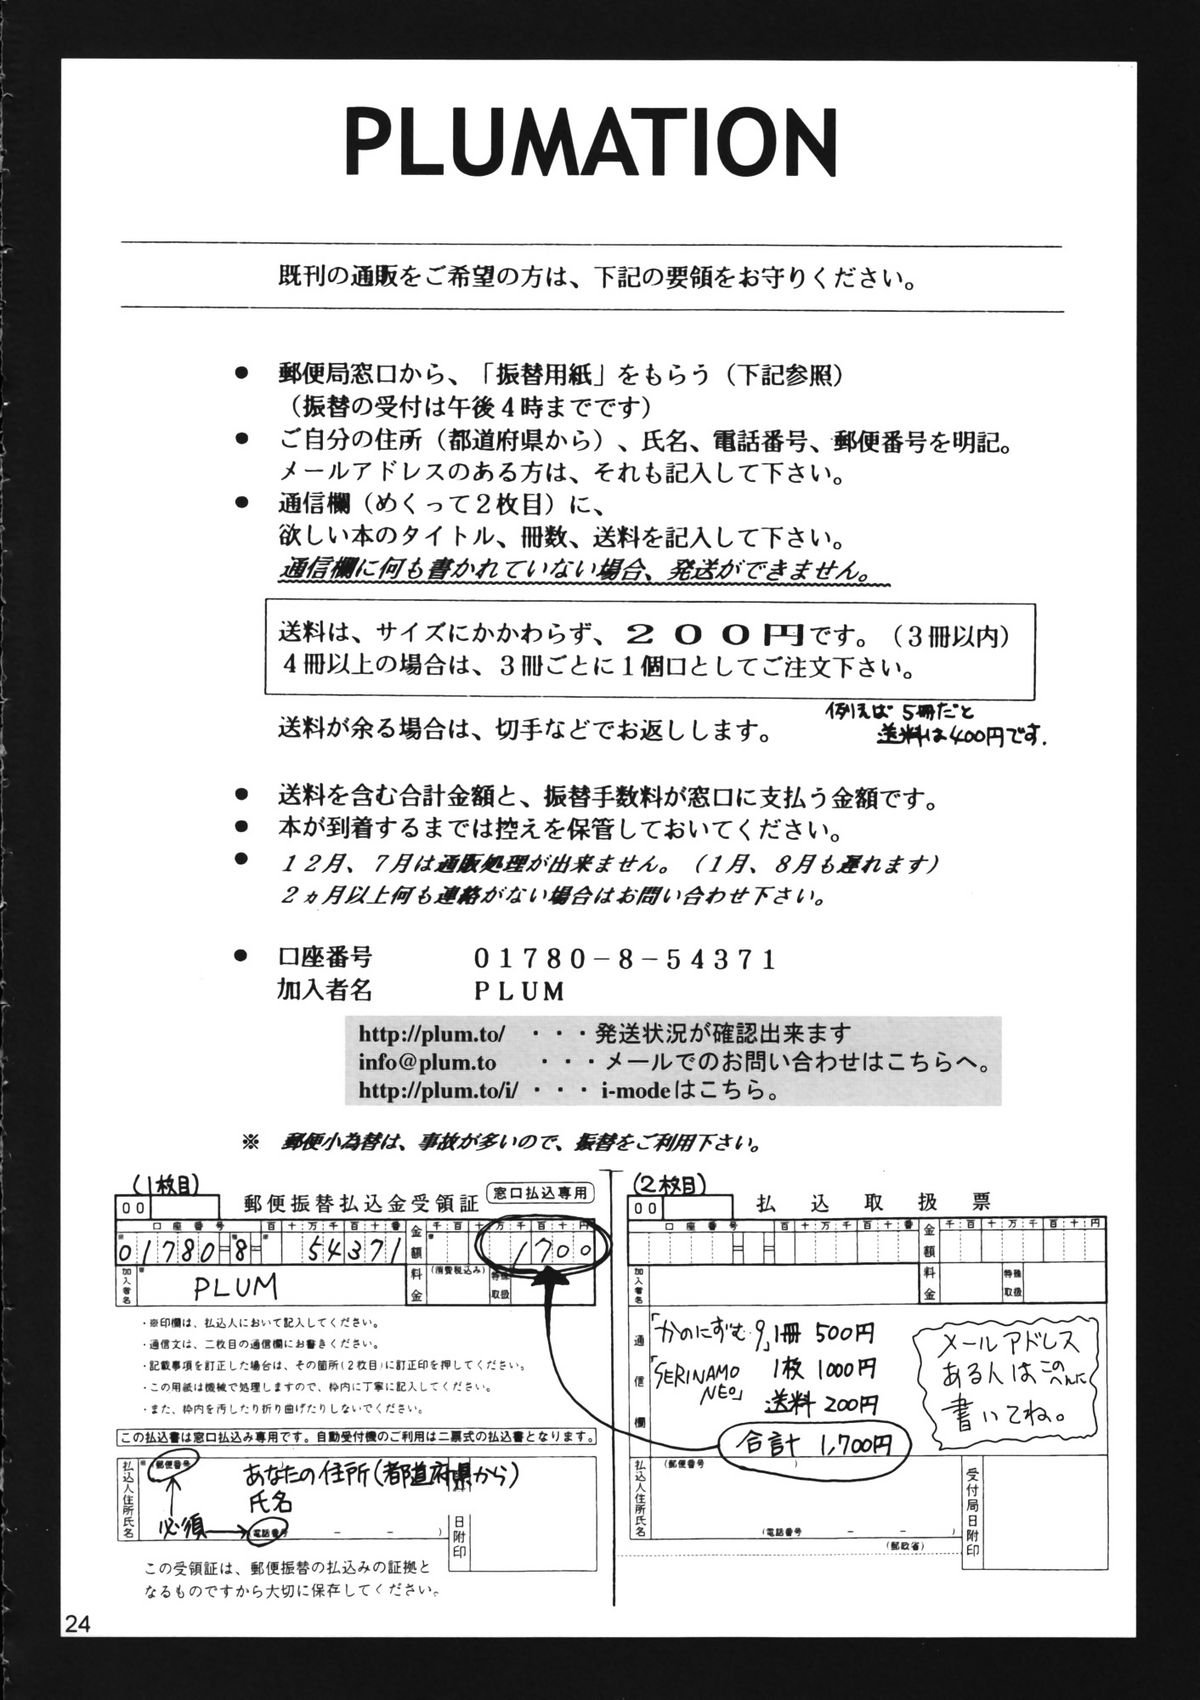 PLUMATION
既刊の通販をご希望の方は、下記の要領をお守りください。
● 郵便局窓口から、「振替用紙」をもらう（下記参照）
（振替の受付は午後４時までです）
● ご自分の住所（都道府県から）、氏名、電話番号、郵便番号を明記。
メールアドレスのある方は、それも記入して下さい。
● 通信欄（めくって２枚目）に、
欲しい本のタイトル、冊数、送料を記入して下さい。
通信欄に何も書かれていない場合、発送ができません。
送料は、サイズにかかわらず、２００円です。（３冊以内）
４冊以上の場合は、３冊ごとに１個口としてご注文下さい。
例えば 5冊だと
送料は400円です.
送料が余る場合は、切手などでお返しします。
● 送料を含む合計金額と、振替手数料が窓口に支払う金額です。
● 本が到着するまでは控えを保管しておいてください。
● １２月、７月は通販処理が出来ません。（１月、８月も遅れます）
２ヵ月以上何も連絡がない場合はお問い合わせ下さい。
● 口座番号 ０１７８０－８－５４３７１
加入者名 ＰＬＵＭ
http://plum.to/ ・・・発送状況が確認出来ます
info@plum.to ・・・メールでのお問い合わせはこちらへ。
http://plum.to/i/ ・・・ i-modeはこちら。
※ 郵便小為替は、事故が多いので、振替をご利用下さい。
(1枚目)
00 郵便振替払込金受領証 窓口払込専用
口座番号 百十万千百十番 金額 千百十万千百十円
01780-8- 54371 1700
加入者名 PLUM 料金 (消費税込み) 特殊取扱
・※印欄は、払込人において記入してください。
・通信文は、二枚目の通信欄にお書きください。
・記載事項を訂正した場合は、その箇所(２枚目)に訂正印を押してください。
・この用紙は機械で処理しますので、枠内に丁寧に記入してください。
・また、枠内を汚したり折り曲げたりしないでください。
この払込書は窓口払込み専用です。自動受付機のご利用は二票式の払込書となります。
払込人住所氏名 郵便番号 あなたの住所(都道府県から)
氏名
必須 電話番号 － － )
日附印
この受領証は、郵便振替の払込みの証拠と
なるものですから大切に保存してください。
(2枚目)
00 払込取扱票
口座番号 百十万千百十番 金額 千百十万千百十円
加入者名 料金 特殊取扱
通信欄
「かのにずむ9」1冊 500円
「SERINAMO NEO」 1枚 1000円
送料 200円
合計 1,700円
メールアドレス
ある人はこのへんに
書いてね。
払込人住所氏名 (郵便番号 )
(電話番号 － － )
受付局日附印
(郵政省)
24